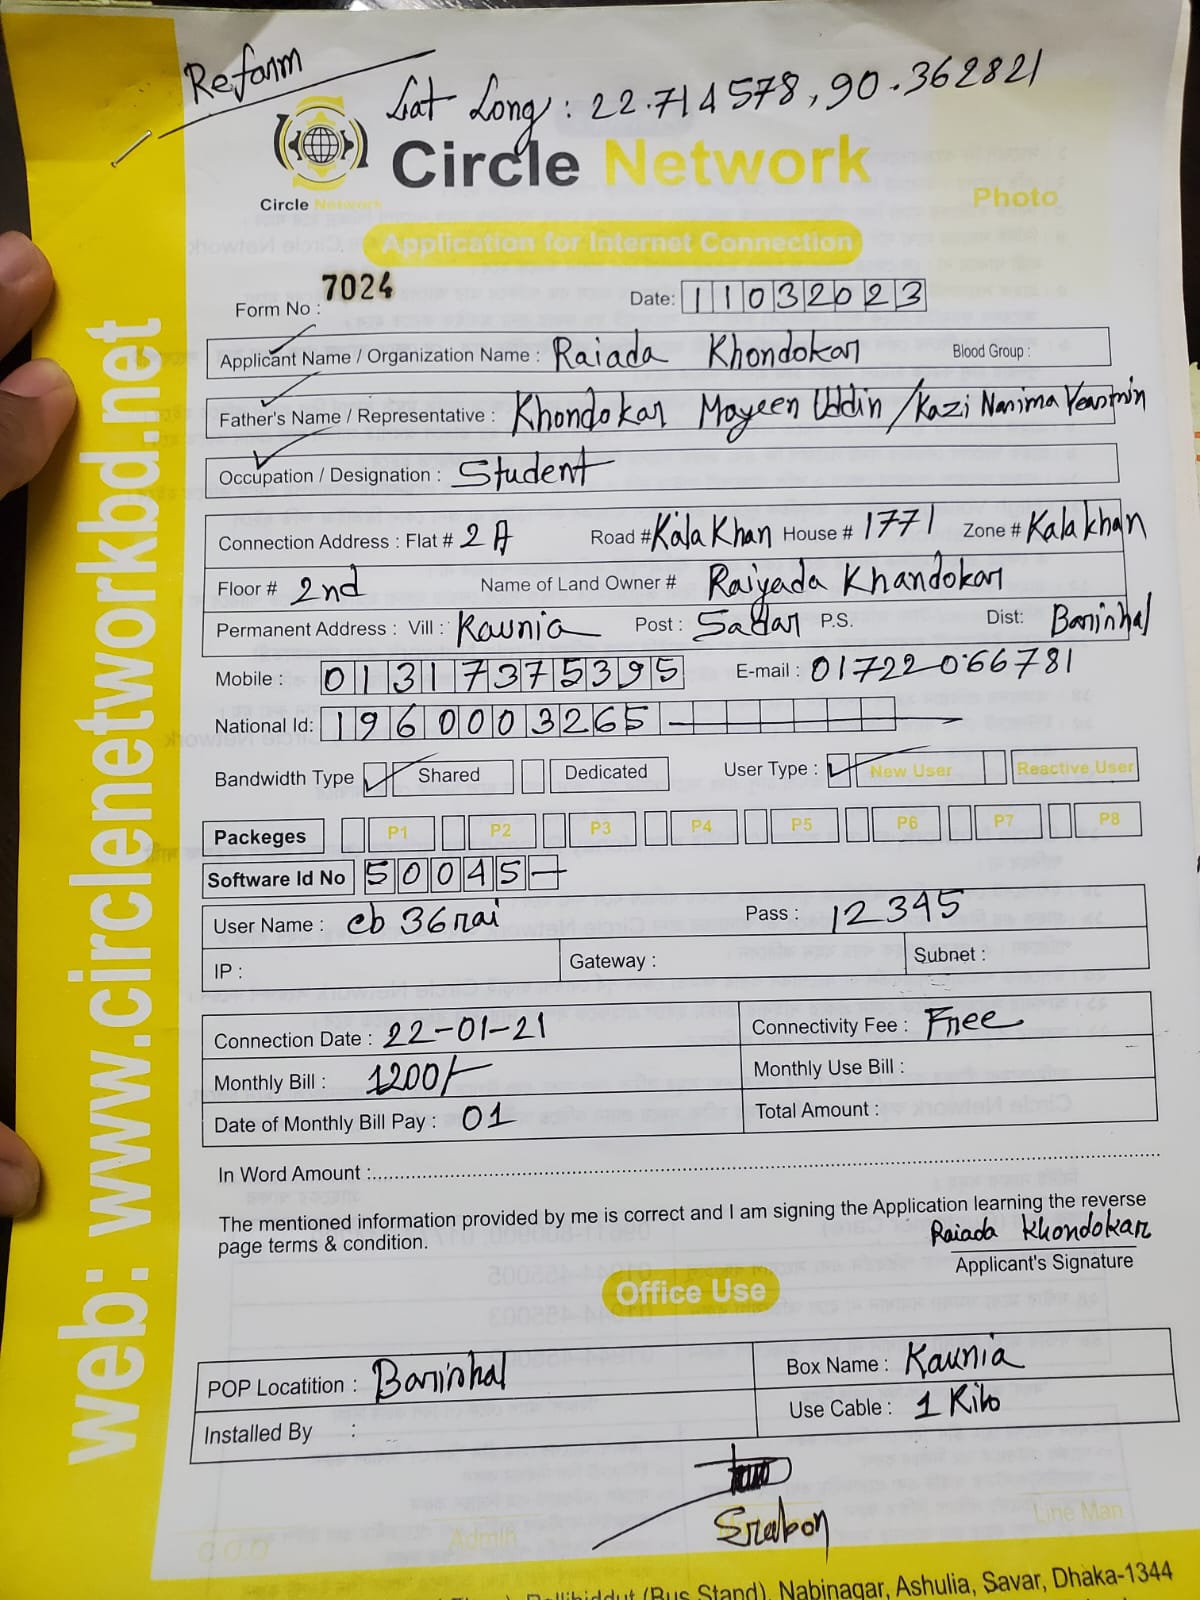 Refarm
Lat Long : 22.714578, 90.362821
Circle Network
Circle Network
Photo
Application for Internet Connection
Form No : 7024 Date: 11032023
Applicant Name / Organization Name : Raiada Khondokar Blood Group :
Father's Name / Representative : Khondokar Mayeen Uddin / Kazi Narima Yeasmin
Occupation / Designation : Student
Connection Address : Flat # 2A Road # Kala Khan House # 1771 Zone # Kala khan
Floor # 2nd Name of Land Owner # Raiyada Khandokar
Permanent Address : Vill : Kaunia Post : Sadar P.S. Dist: Barishal
Mobile : 01317375395 E-mail : 01722066781
National Id: 1960003265
Bandwidth Type Shared Dedicated User Type : New User Reactive User
Packeges P1 P2 P3 P4 P5 P6 P7 P8
Software Id No 50045
User Name : cb36rai Pass : 12345
IP : Gateway : Subnet :
Connection Date : 22-01-21 Connectivity Fee : Free
Monthly Bill : 1200/- Monthly Use Bill :
Date of Monthly Bill Pay : 01 Total Amount :
In Word Amount :
The mentioned information provided by me is correct and I am signing the Application learning the reverse
page terms & condition.
Raiada Khondokar
Applicant's Signature
Office Use
POP Locatition : Barishal Box Name : Kaunia
Installed By : Use Cable : 1 Kilo
Srabon
Admin Line Man
(Bus Stand), Nabinagar, Ashulia, Savar, Dhaka-1344
web: www.circlenetworkbd.net